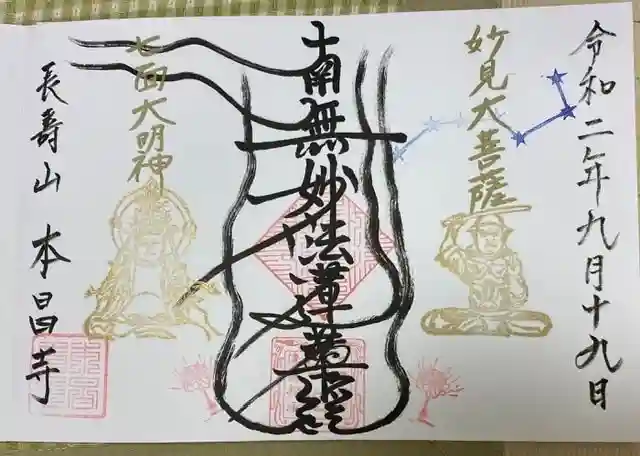 令和二年九月十九日
妙見大菩薩
南無妙法蓮華経
北面大明神
長寿山 本昌寺